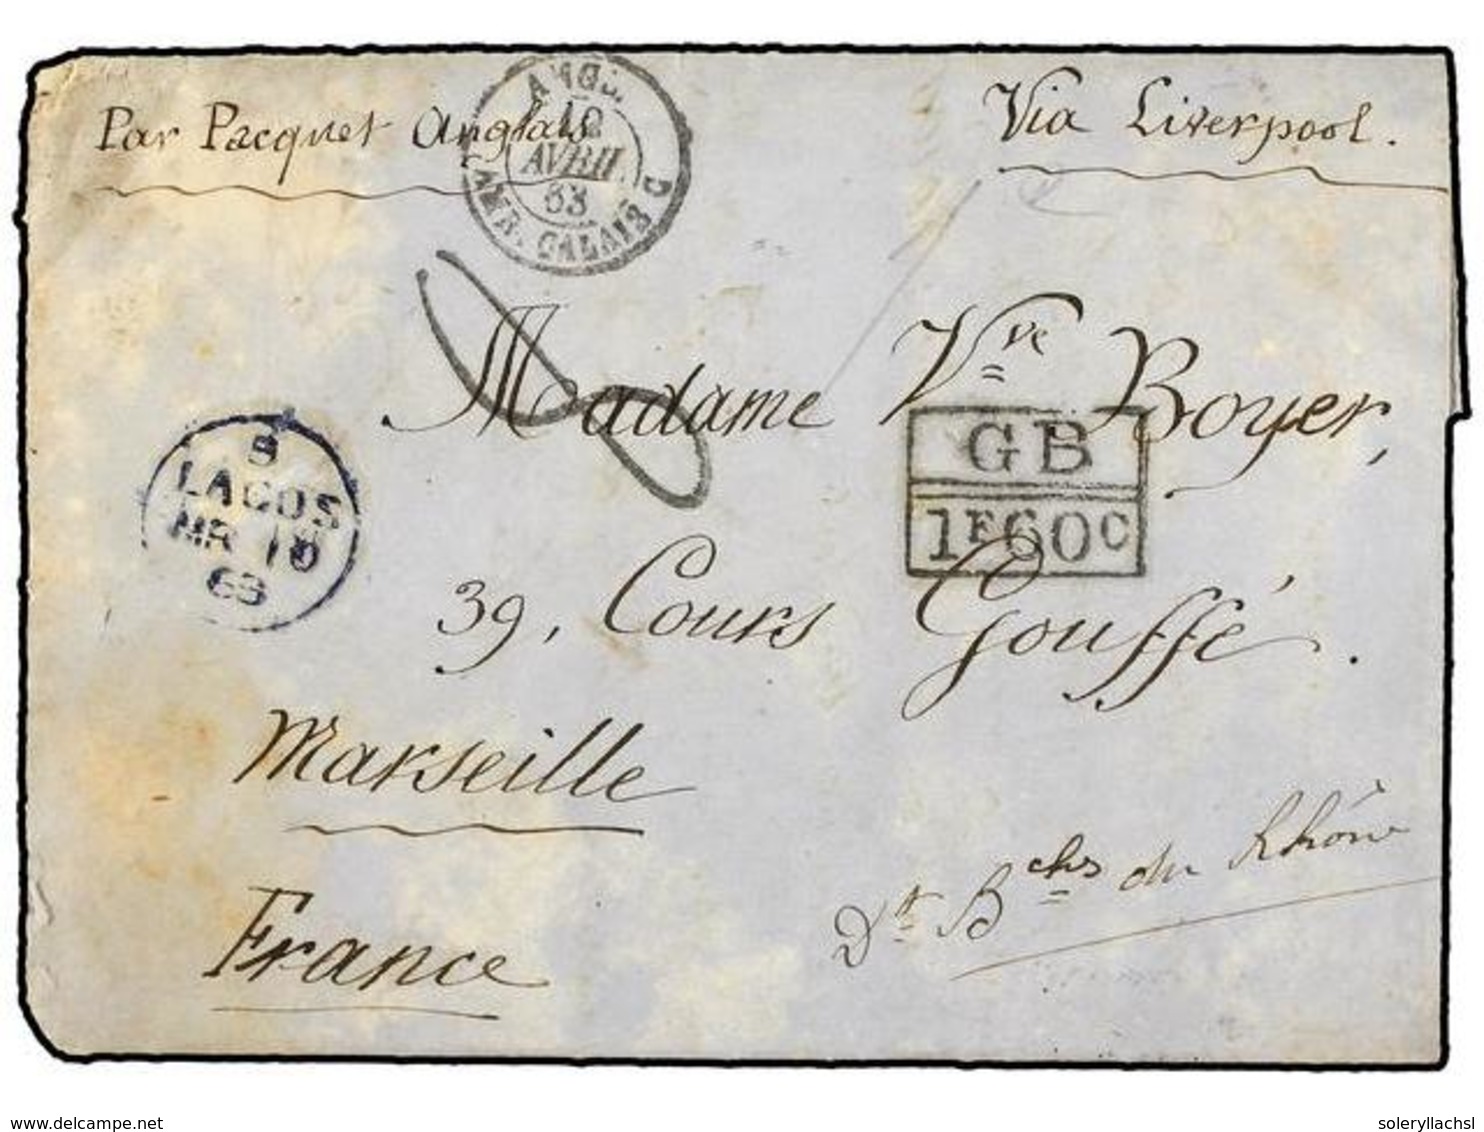 Par Pacquet Anglais
Via Liverpool.
ANGL.
10
AVRIL
63
AMB. CALAIS C
8
Madame Vve Boyer,
GB
1F60C
B
LAGOS
MR 10
63
39, Cours Gouffé.
Marseille
Dt Bchs du Rhône
France
www.delcampe.net
soleryllachsl